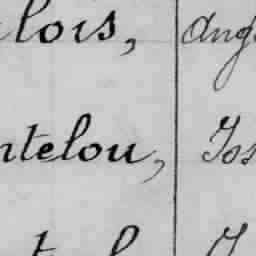 lois, Ang
ntelou, Jos